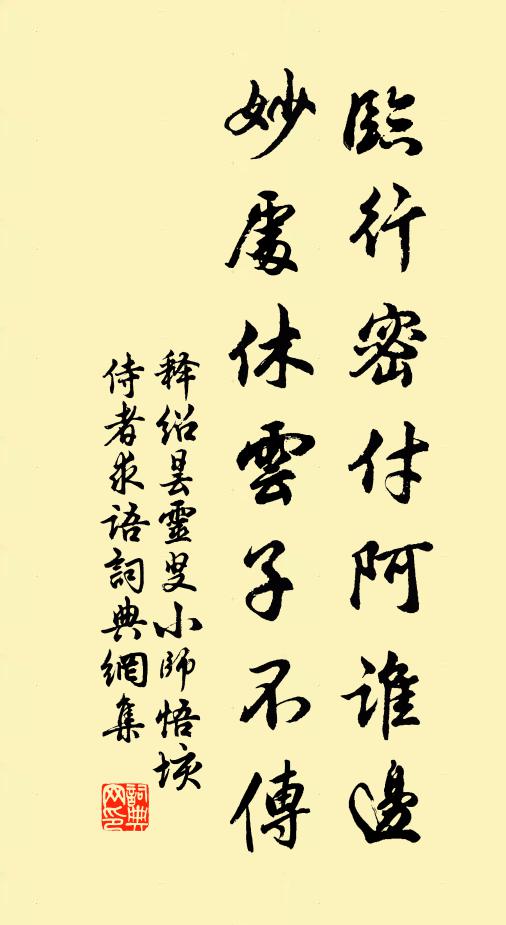 臨行密付阿誰邊
妙處休雲子不傳
释紹昙靈叟小師悟垓
侍者求語詞典網集
詞典网印